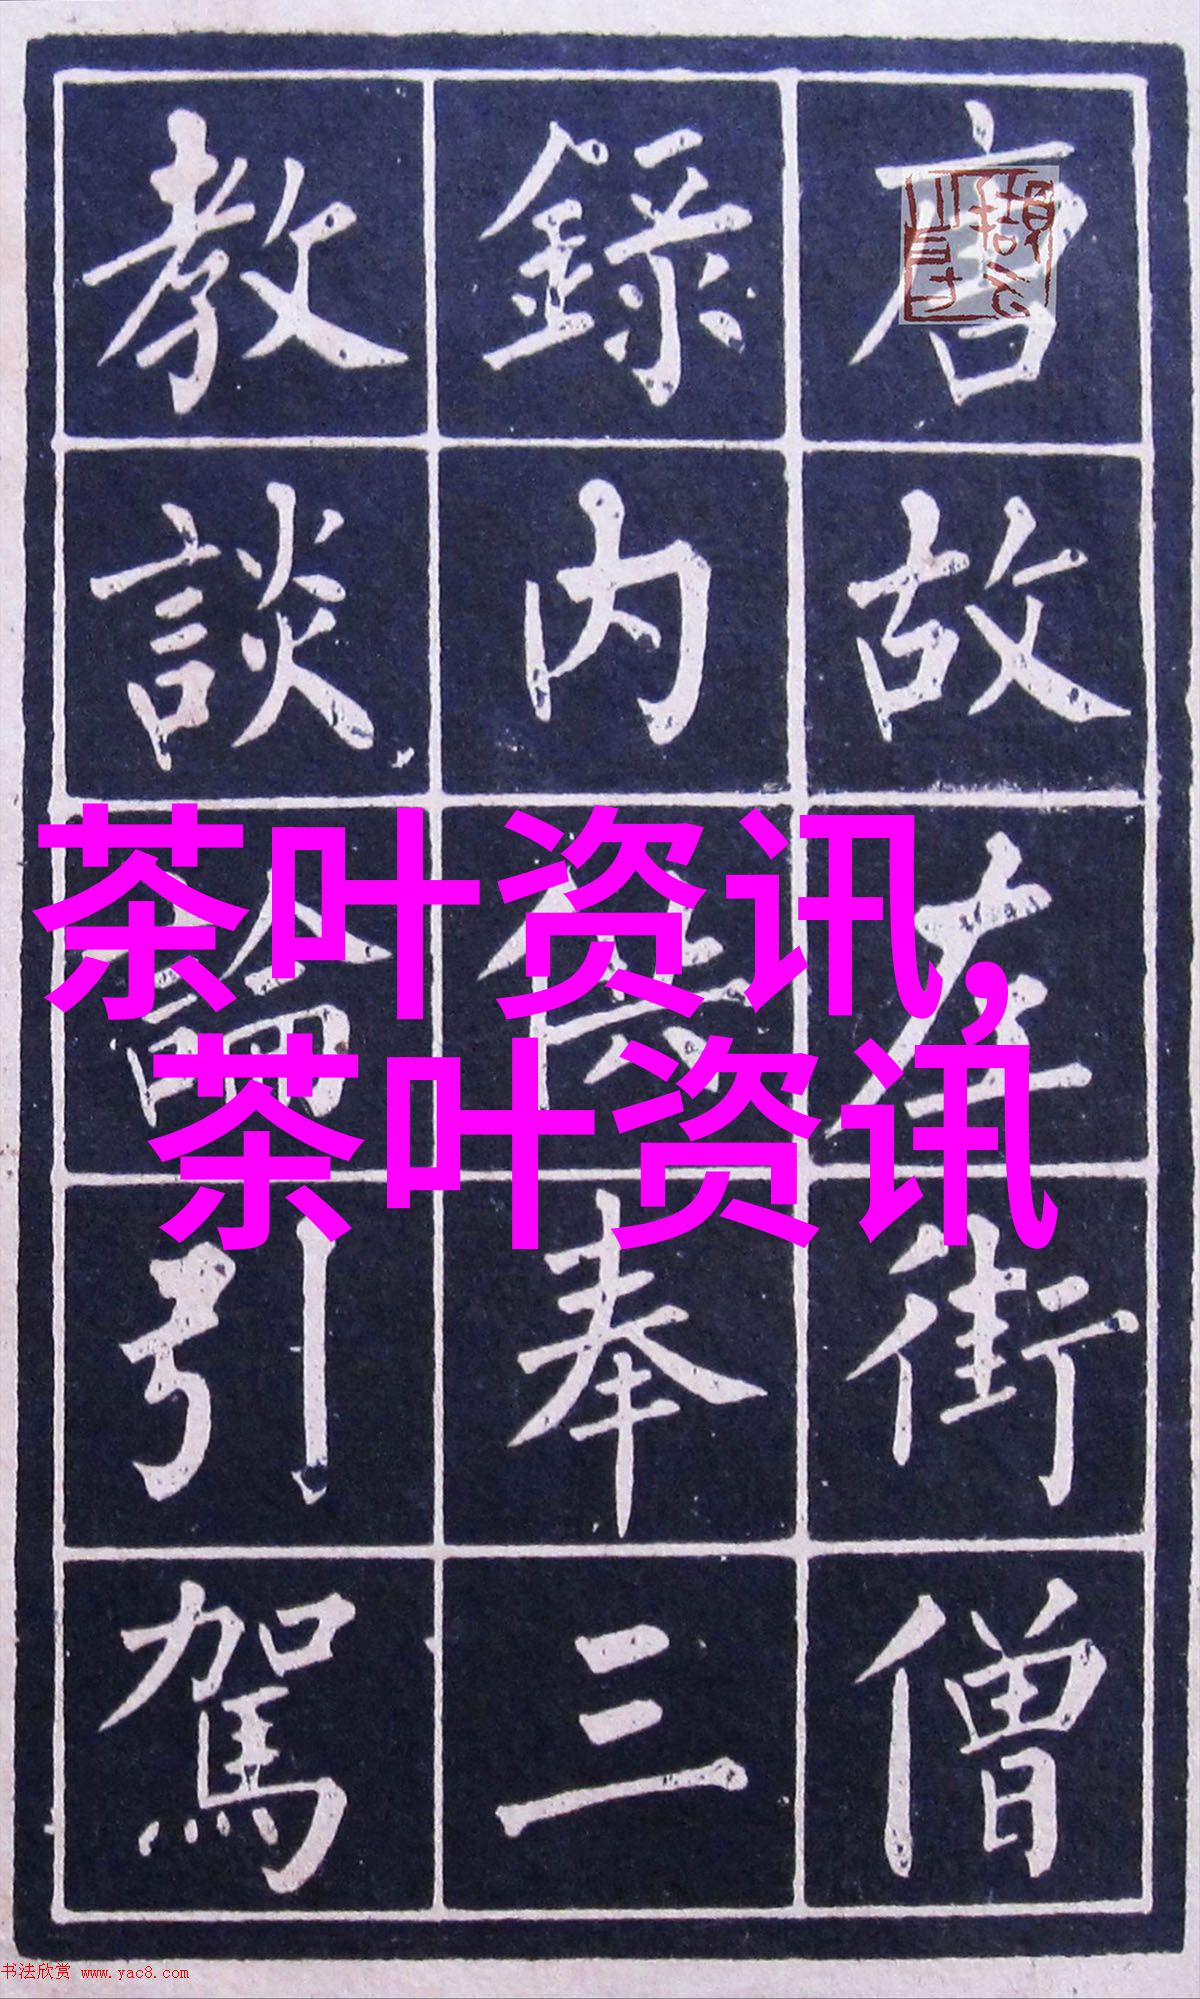 唐故左街僧
錄內供奉三
教談論引駕
茶叶资讯,
茶叶资讯
书法欣赏 www.yac8.com